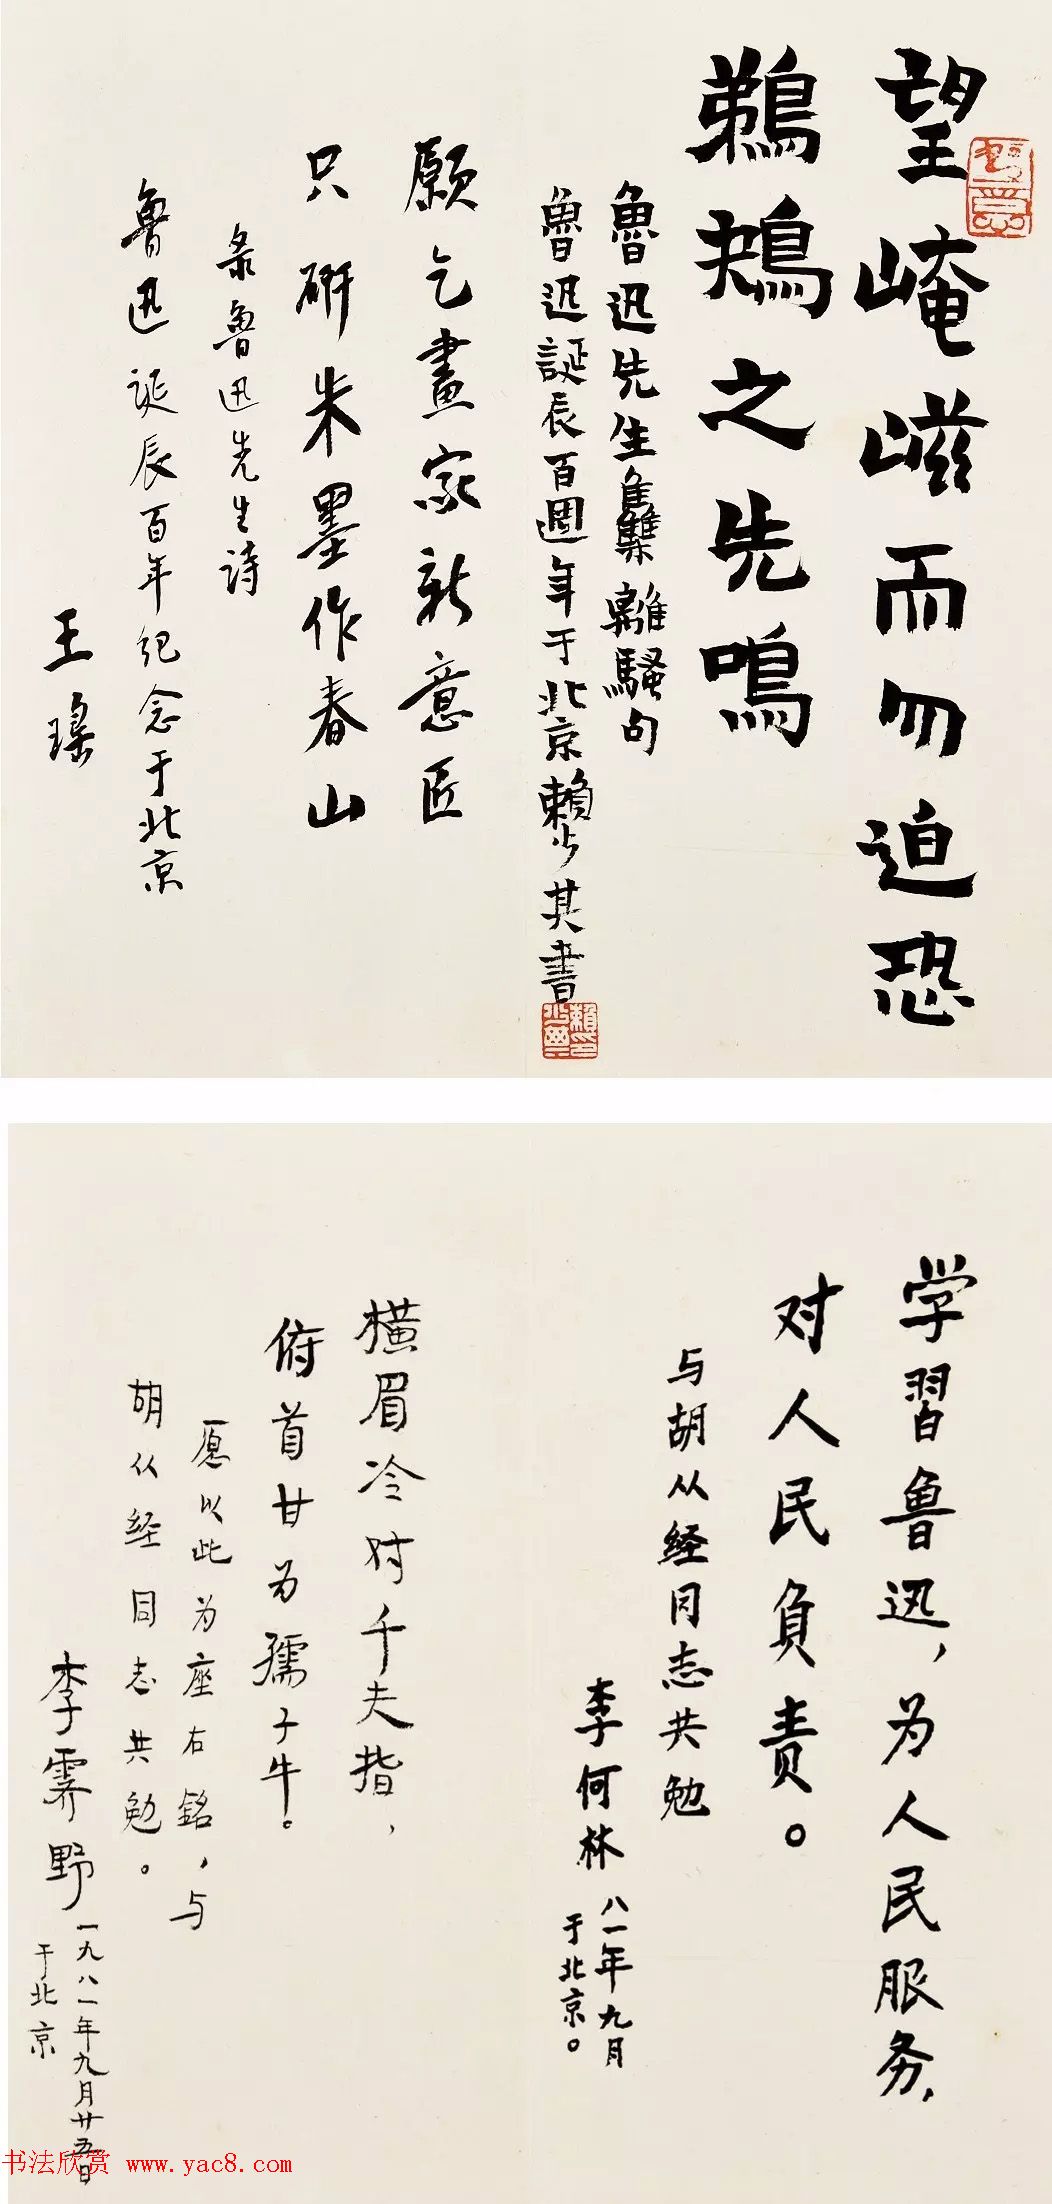 望崦嵫而勿迫恐
鵜鴂之先鳴
魯迅先生集離騷句
魯迅誕辰百週年于北京賴少其書
願乞畫家新意匠
只研朱墨作春山
录魯迅先生诗
魯迅诞辰百年纪念于北京
王瑶
学習鲁迅,为人民服务,
对人民負责。
与胡从经同志共勉
李何林
八一年九月
于北京。
橫眉冷对千夫指,
俯首甘为孺子牛。
愿以此为座右銘,与
胡从经同志共勉。
李霁野
一九八一年九月廿五日
于北京
书法欣赏 www.yac8.com